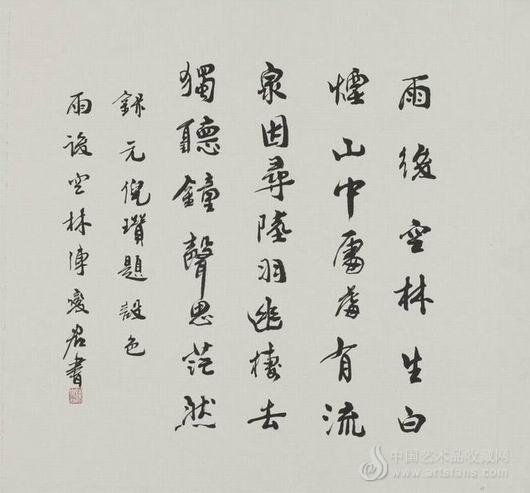 雨後空林生白
煙山中處處有流
泉因尋陸羽幽棲去
獨聽鐘聲思茫然
錄元倪瓚題設色
雨後空林 傅愛君書
中国艺术品收藏网
www.artsfans.com